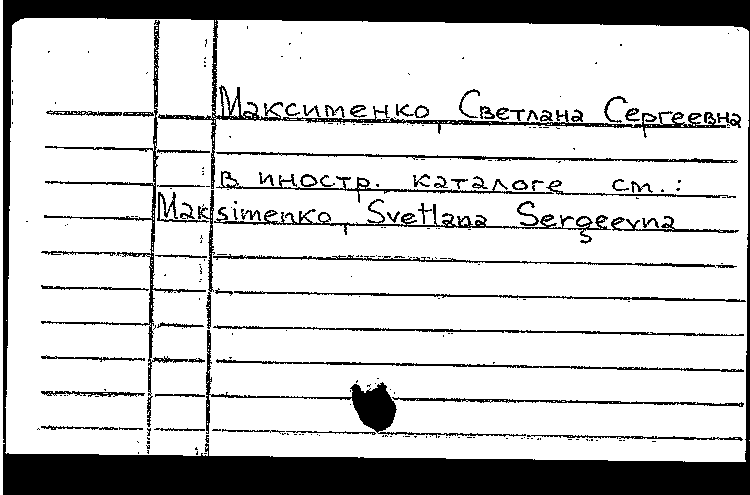 Максименко, Светлана Сергеевна
в иностр. каталоге см.:
Maksimenko, Svetlana Sergeevna